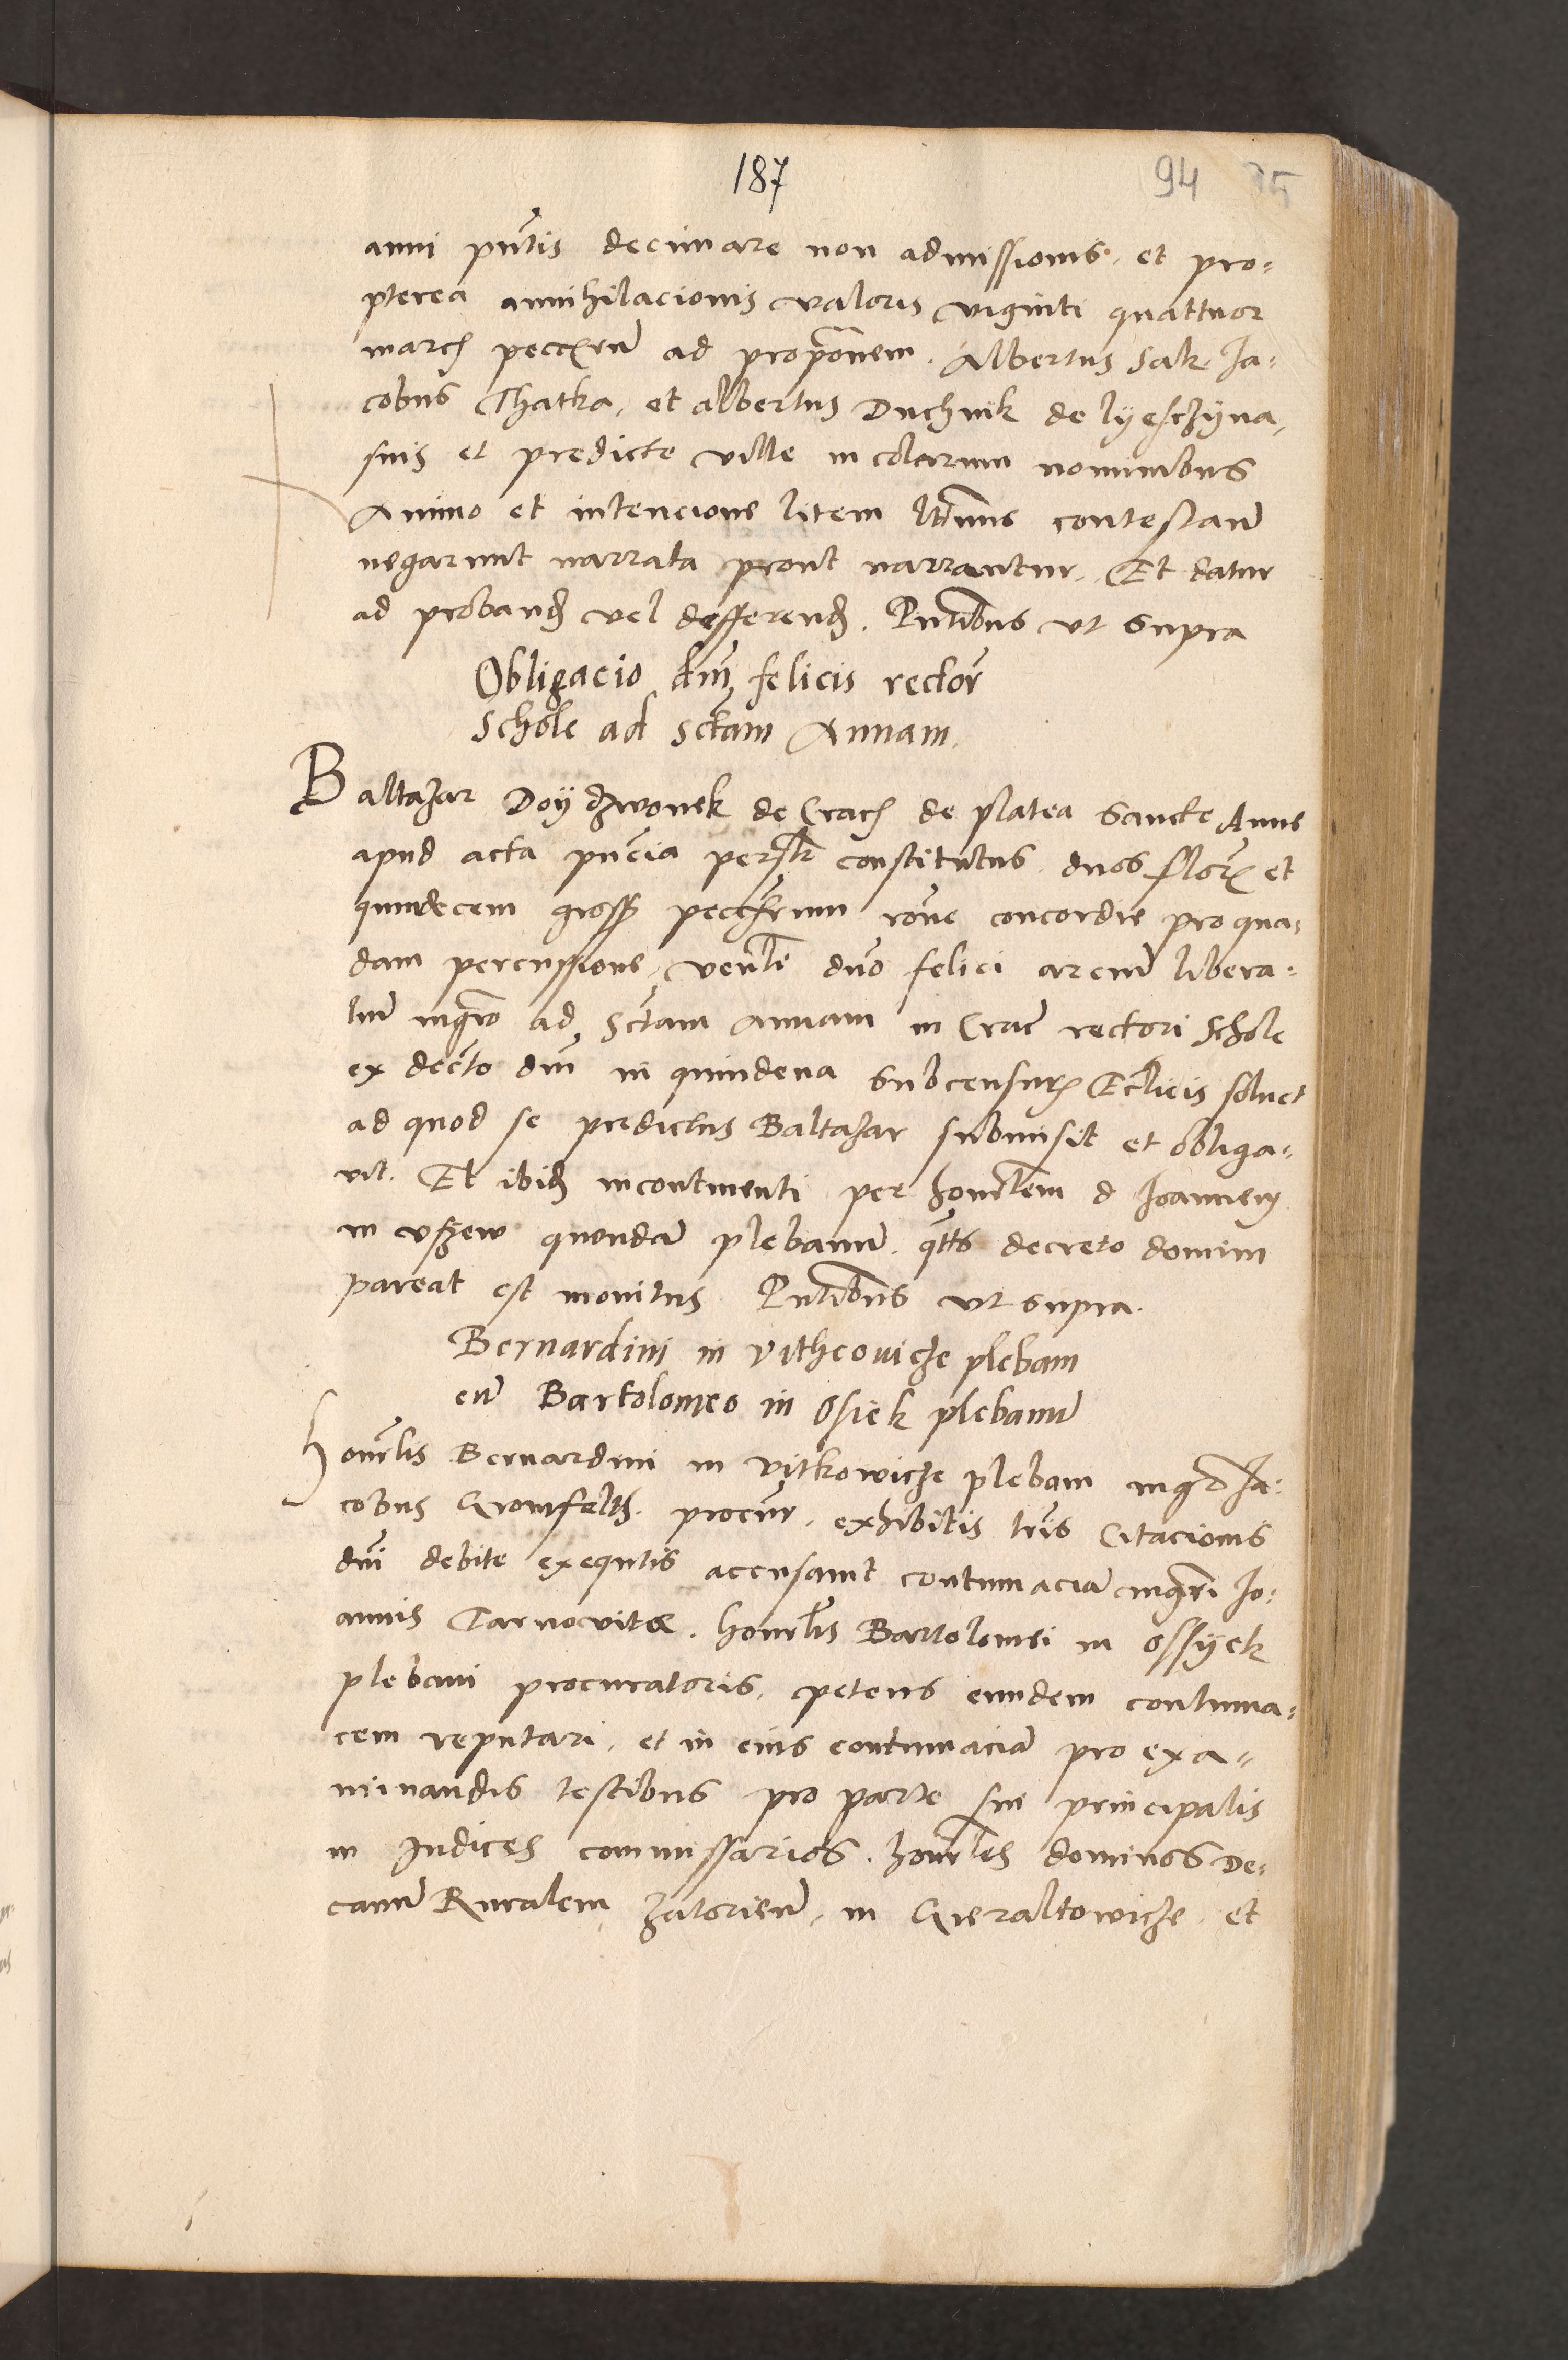 187
94 95
anni pntis decimare non admissionis. et pro-
pterea annihilacionis valoris viginti quattuor
march pecc(rum ad propronem. Albertus Sak Ja-
cobus Thatka, et albertus Duchnik de lyesczyna,
suis et predicte ville incolarum nominibus
Animo et intencione litem ltimus contestan
negarunt narrata prout narrantur. Et datur
ad proband vel defferend. Pntibus vt supra
Obligacio dni felicis rector
Schole ad Sctam Annam.
Baltazar Doydzwonek de Crac de platea Sancte Anne
apud acta pncia persolr constitutus duos flor et
quindecem gross pecctrum rone concordie pro qua-
dam percussione, venlti dno felici arcium libera-
lium mgro ad Sctam Annam in Crac rectori Schole
ex decto dni in quindena sub censur Ecclicis soluet
ad quod se predictus Baltazar submisit et obliga-
vit. Et ibid incontinenti per honrlem d Joannem
in vszew quondam plebanum. qtts decreto domini
pareat est monitus Pntibus vt supra.
Bernardini in vitheouicze plebani
cum Bartolomeo in Osiek plebanum
Honrlis Bernardini in vitkowicze plebani mgr Ja-
cobus Gromfelth. procur. exhibitis lris Citacionis
dni debite exequtis accusauit contumaciam mgri Jo-
annis Tarnovite. honrlis Bartolomei in ossyek
plebani procuratoris, petens eundem contuma-
cem reputari, et in eius contumaciam pro exa-
minandis testibus pro parte sui principalis
in Judices commissarios. honrles dominos De-
canum Ruralem Zatorien, in Gieraltowicze et